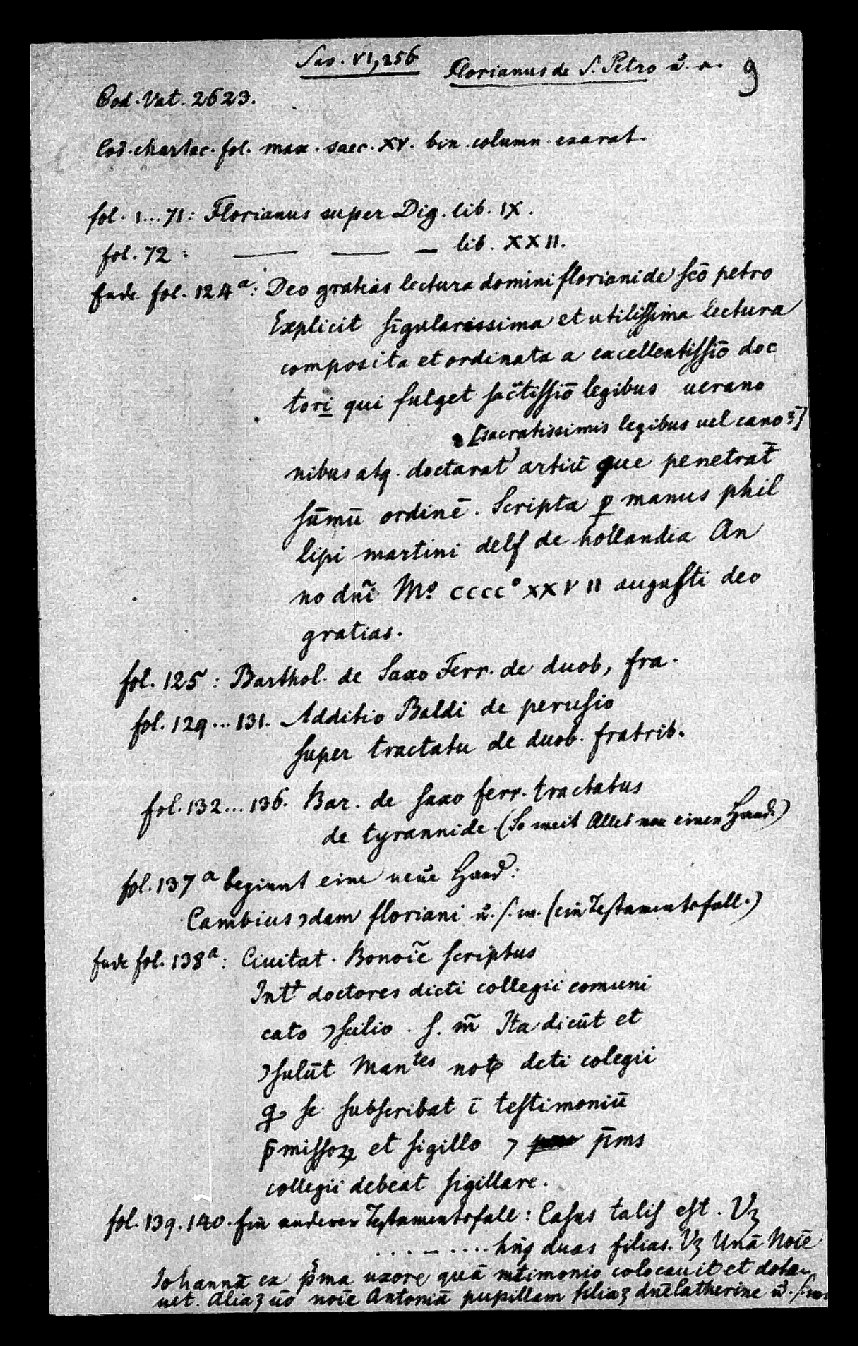 Sav. VI, 256 Florianus de S. Petro u. a. 9
Cod. Vat. 2623.
Cod. chartac. fol. max. saec. XV. bin. column. exarat.
fol. 1...71: Florianus super Dig. lib. IX.
fol. 72: — — — lib. XXII.
Ende fol. 124a: Deo gratias lectura domini floriani de sco̅ petro
Explicit singularissima et utilissima lectura
composita et ordinata a excellentissio̅ doc
tori qui fulget sactissio̅ legibus uerano
[sacratissimis legibus vel cano?]
nibus atq. doctarat' artiu̅ que penetrat̅
su̅mu̅ ordine̅. Scripta p manus phil
lipi martini delf de hollandia An
no dni̅ Mo CCCCo XXVII augusti deo
gratias.
fol. 125: Barthol. de Saxo Ferr. de duob, fra.
fol. 129...131. Additio Baldi de perusio
super tractatu de duob. fratrib.
fol. 132...136. Bar. de saxo ferr. tractatus
de tyrannide (So weit Alles von einer Hand)
fol. 137a beginnt eine neue Hand:
Cambius ɔdam floriani u. s. w. (ein Testamentsfall.)
Ende fol. 138a: Ciuitat. Bonoie̅ scriptus
doctores dicti collegii comuni
cato ɔsilio. s. m̅ Ita dicu̅t et
ɔsulu̅t Mantes deti colegii
se subscribat i̅ testimoniu̅
p̅missoꝝ et sigillo ɔ p̅ms
collegii debeat sigillare.
fol. 139. 140. Ein anderer Testamentsfall: Casus talis est. Vꝫ
....—.... duas filias. Vꝫ Una̅ Noie̅
Iohanna̅ ex p̅ma uxore qua̅ mtimonio colocauit et dota
uit. Aliaꝫ uo̅ noie̅ Antonia̅ pupillam filiaꝫ dne̅ Catherine u. s. w.